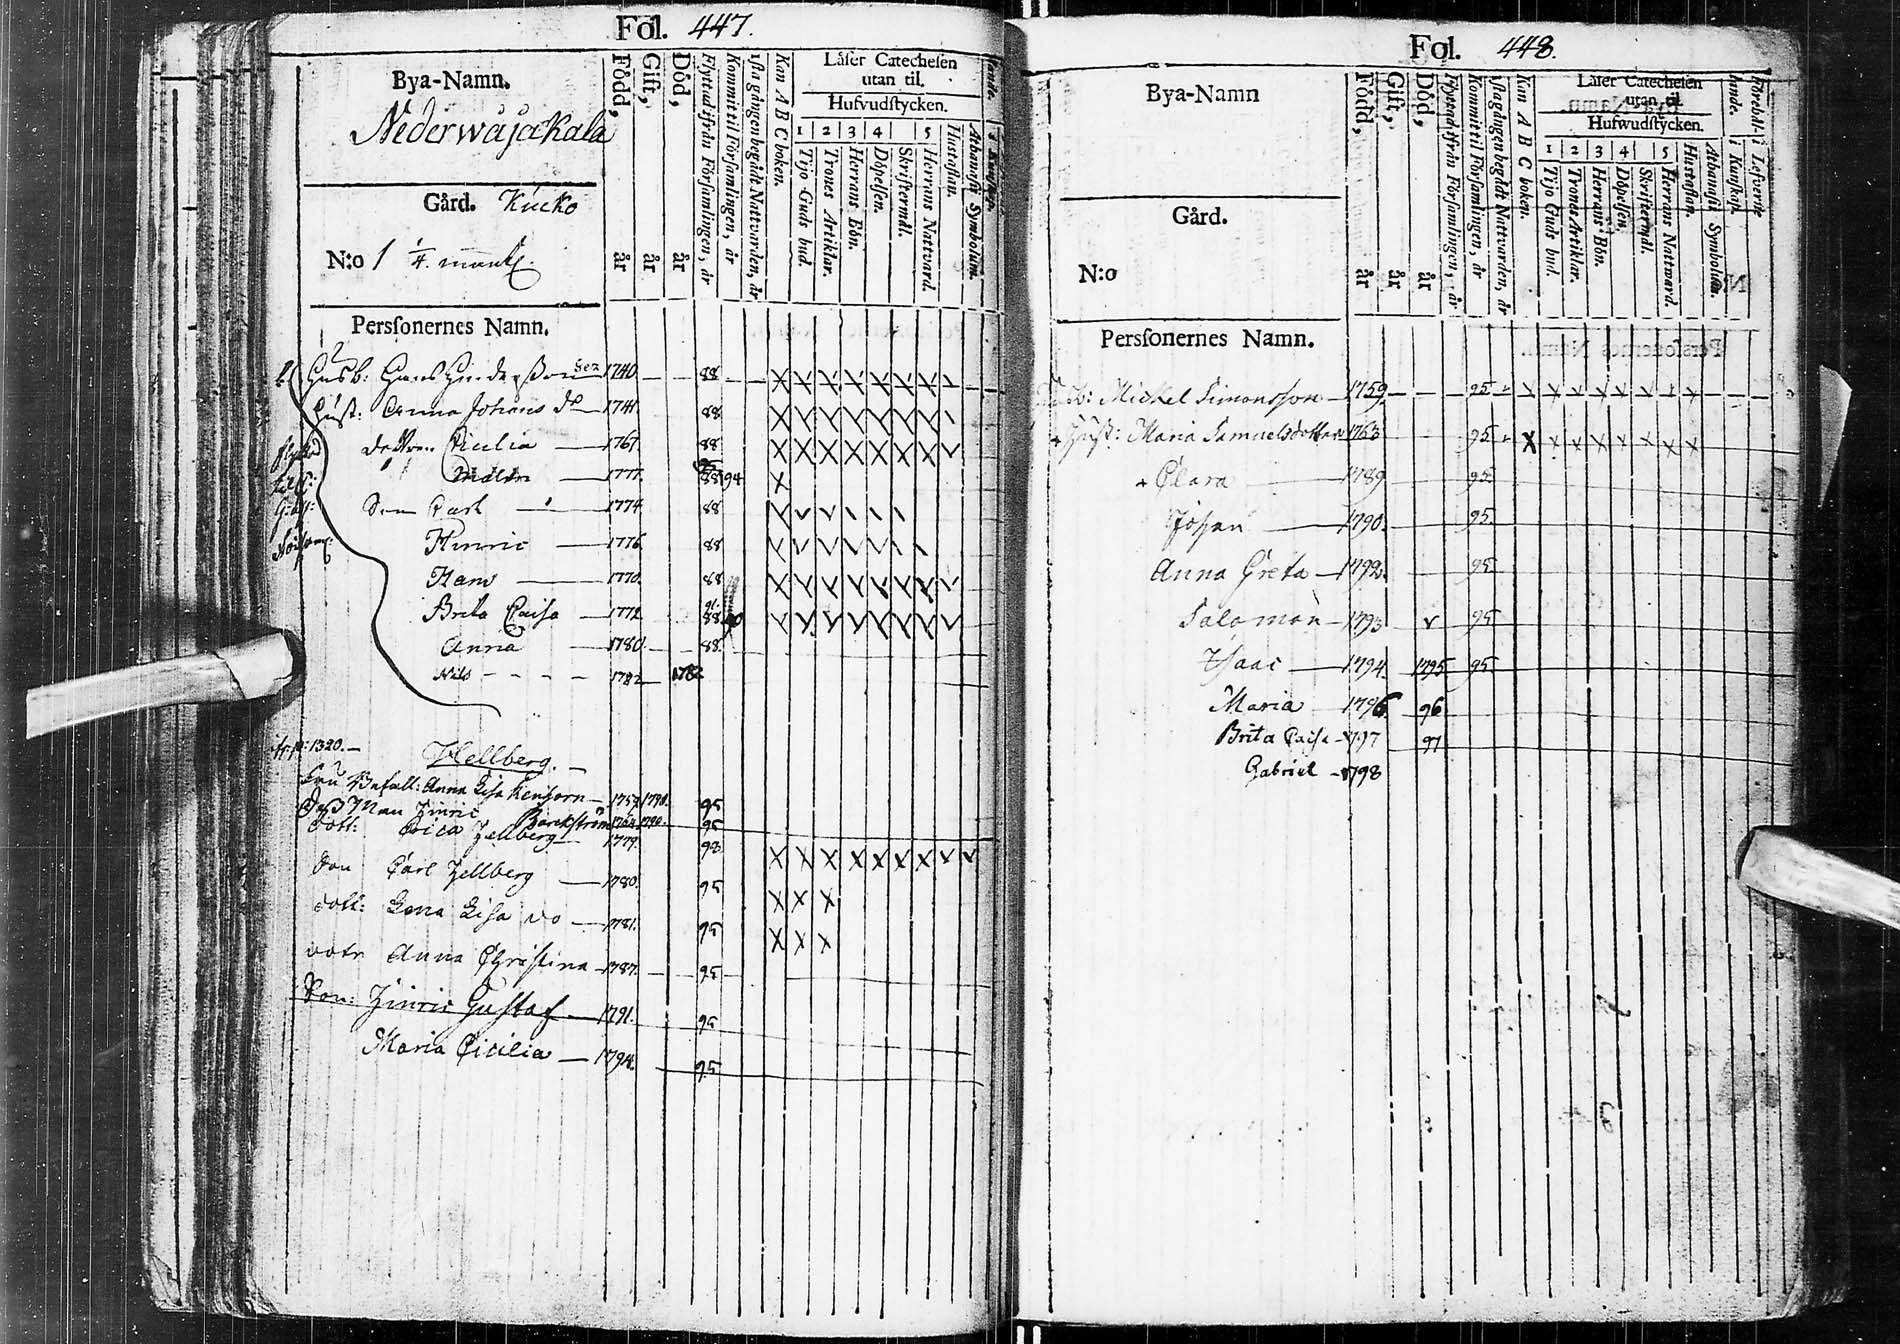 Fol. 447.
Bya-Namn.
Nederwåjakala
Gård. Kücko
N:o 1 1/4. mantl.
Född, år
Gift, år
Död, år
Flyttad ifrån Församlingen, år
Kommit til Församlingen, år
1sta gången begådt Nattvarden, år
Kan A B C boken.
Låser Catechesen
utan til.
Hufvudstycken.
1 2 3 4 5
Tijo Guds bud.
Trones Artiklar.
Herrans Bön.
Döpelsen.
Skriftermål.
Herrans Nattvard.
Hustaflan.
Athanasii Symbolum.
Personernes Namn.
Husb: Hans Hindersson Sen 1740. 88
Hust: Anna Johans dr 1741. 88
Cicilia 1767. 88
1777. 88 94
Son Carl 1774 88
Hinric 1776. 88
Hans 1770. 88
Brita Caisa 1772 91. 88
Anna 1780. 88.
Nils 1782 1782
1320.
Hellberg.
Anna Lisa 1790. 95
Man Hinric Backström 1790. 95
Dott: Hellberg 1779. 98
Son Carl Hellberg 1780. 95
Dott: Lena Lisa do 1781. 95
Anna Christina 1787. 95
Son: Hinric Gustaf 1791. 95
Maria Cicilia 1794. 95
Fol. 448.
Bya-Namn
Gård.
N:o
Född, år
Gift, år
Död, år
Flyttad ifrån Församlingen, år
Kommit til Församlingen, år
1sta gången begådt Nattvarden, år
Kan A B C boken.
Låser Catechesen
utan til
Hufwudstycken.
1 2 3 4 5
Tijo Guds bud.
Trones Artiklar.
Herrans Bön.
Döpelsen.
Skriftermål.
Herrans Nattward.
Hustaflan.
Athanasii Symbolum.
Personernes Namn.
Michel Simonsson 1759. 95
Hust: Maria Samuelsdotter 1763 95
Clara 1789 95
Johan 1790. 95
Anna Greta 1792. 95
Salomon 1793 95
Isaac 1794. 1795 95
Maria 1796. 96
Brita Caisa 1797 97
Gabriel 1798